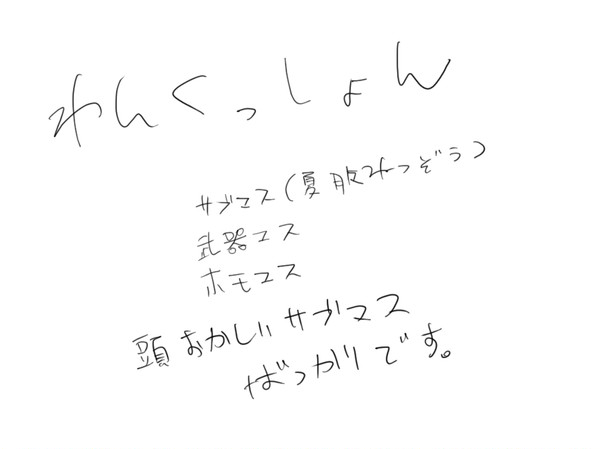 わんくっしょん
サブマス(夏服ねつぞう)
武器コス
ホモコス
頭おかしいサブマス
ばっかりです。